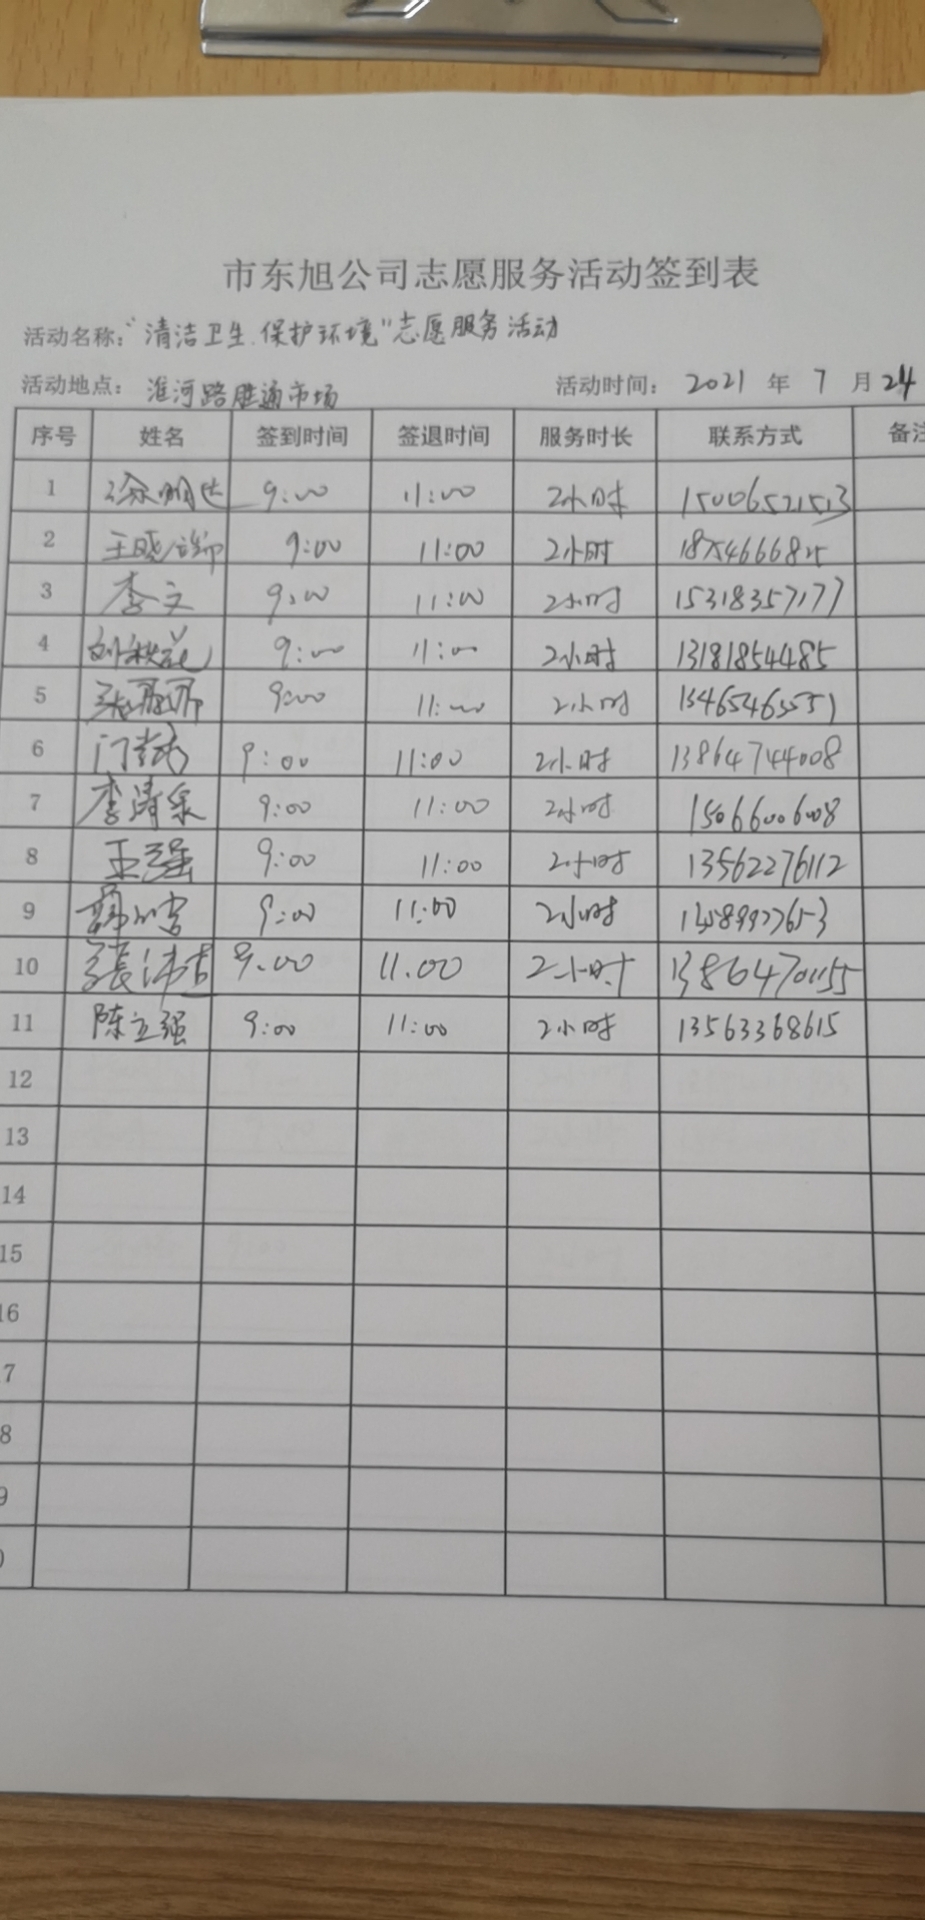 市东旭公司志愿服务活动签到表
活动名称："清洁卫生.保护环境"志愿服务活动
活动地点： 淮河路胜通市场 活动时间： 2021 年 7 月 24
序号 姓名 签到时间 签退时间 服务时长 联系方式 备注
1 徐明达 9:00 11:00 2小时 15006521513
2 王晓 9:00 11:00 2小时
3 李文 9:00 11:00 2小时 15318357177
4 9:00 11:00 2小时 13181854485
5 9:00 11:00 2小时
6 门 9:00 11:00 2小时 13864744008
7 李涛泉 9:00 11:00 2小时 15066006008
8 王强 9:00 11:00 2小时 13562276112
9 9:00 11:00 2小时
10 张沛吉 9.00 11.00 2小时 13864701155
11 陈立强 9:00 11:00 2小时 13563368615
12
13
14
15
16
7
8
9